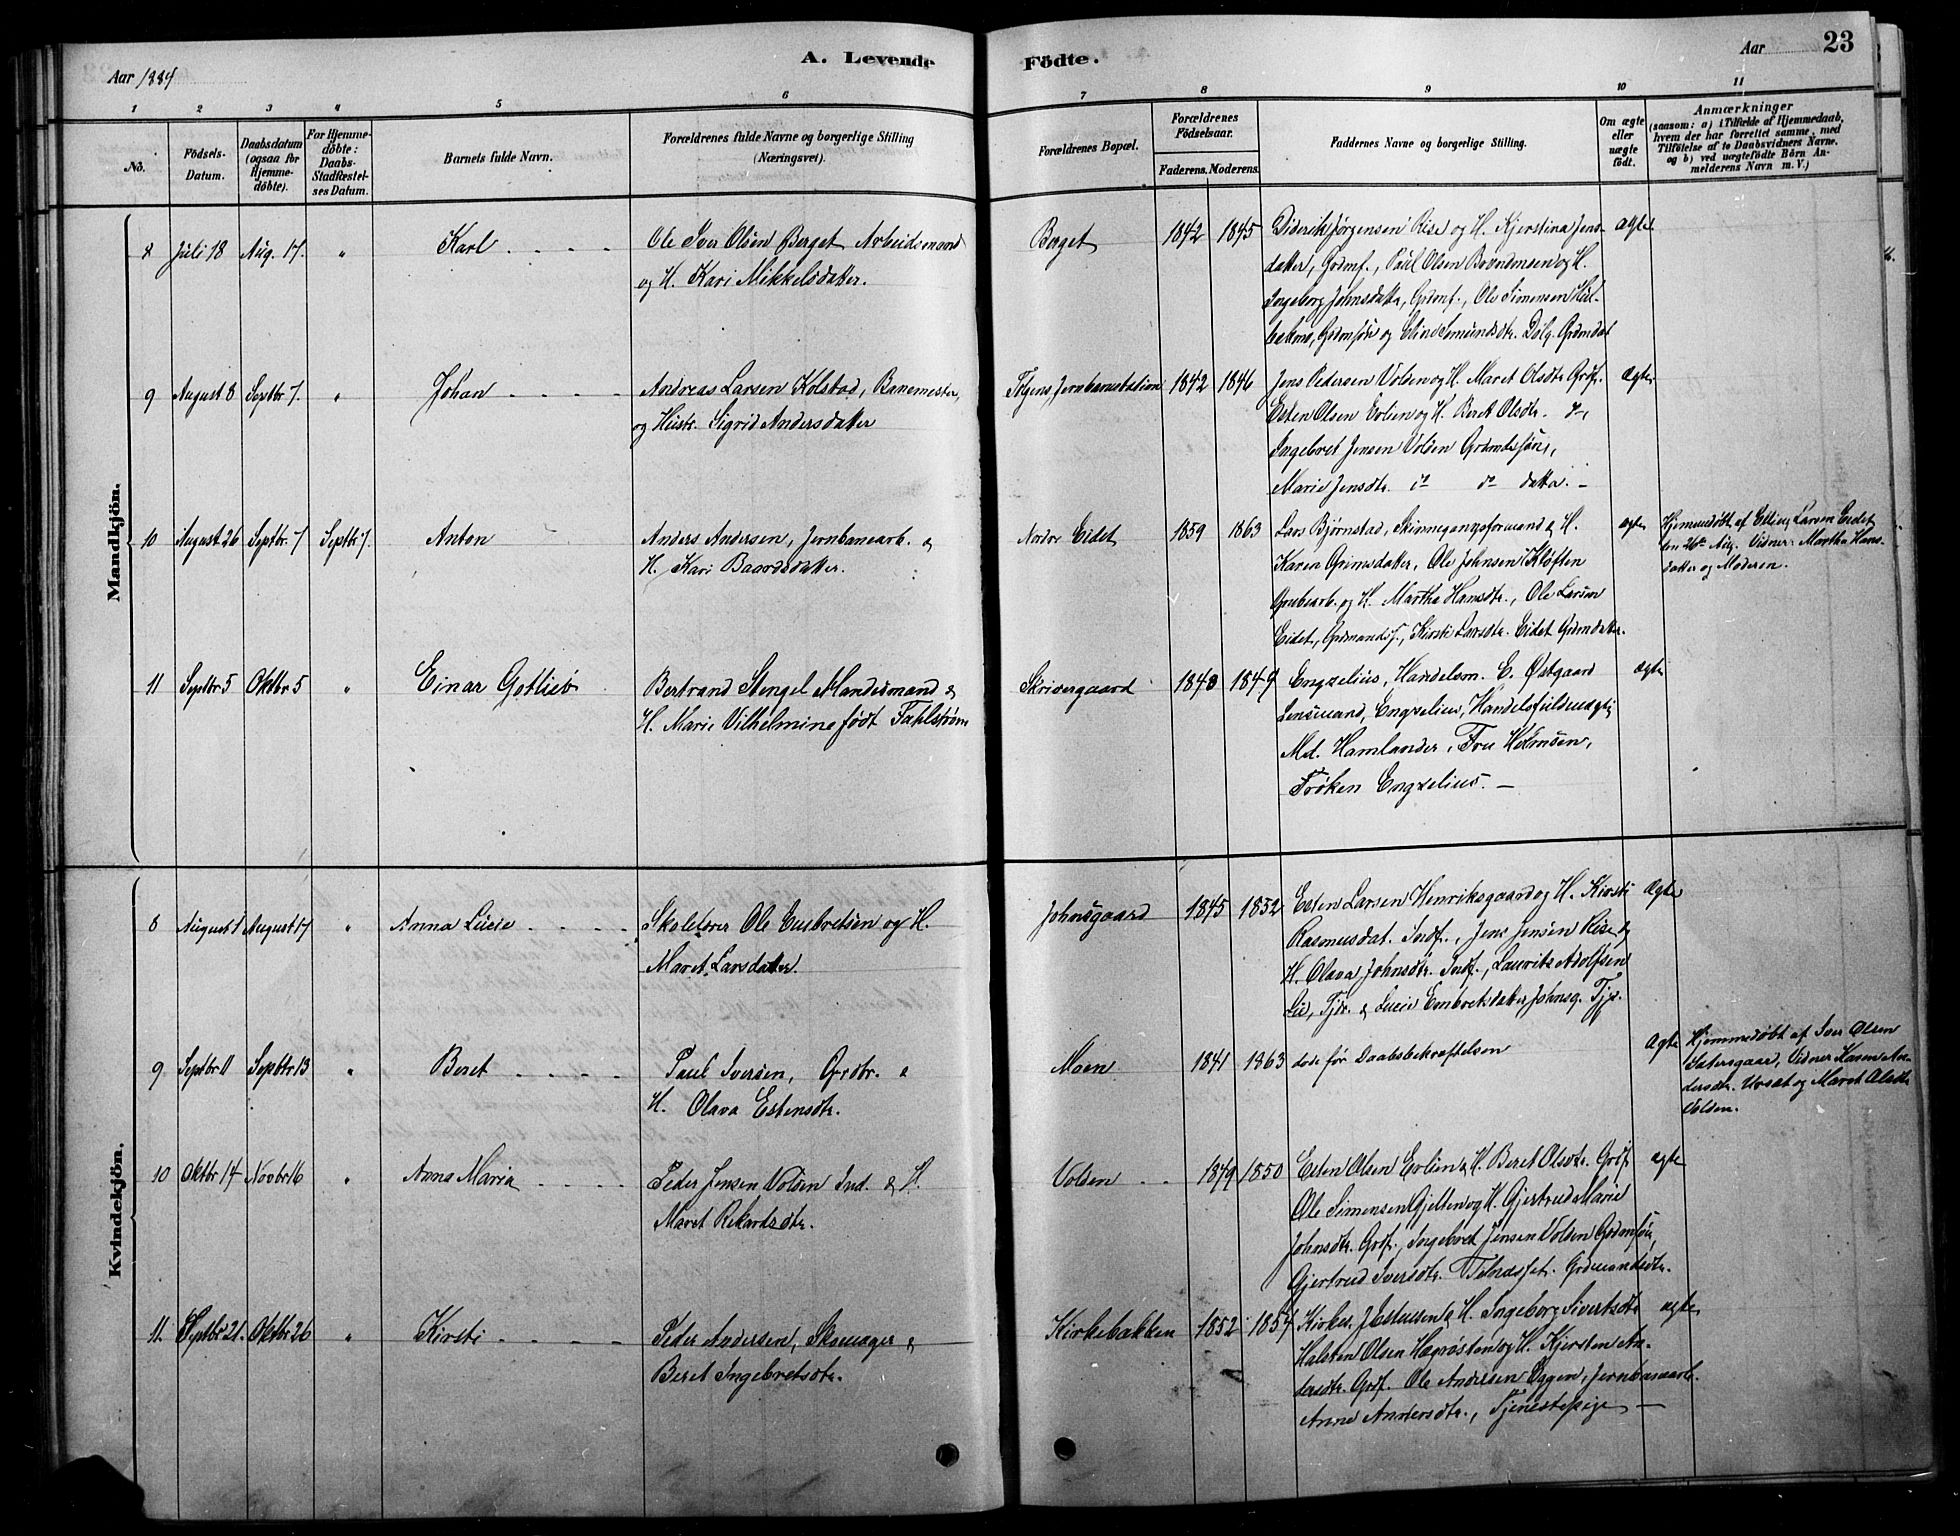 Aar 1884
A. Levende
Födte.
Aar
23
1
2
3
4
5
6
7
8
9
10
11
No.
Födsels-
Datum.
Daabsdatum
(ogsaa for
Hjemme-
döbte).
For Hjemme-
döbte:
Daabs-
Stadfæstel-
ses Datum.
Barnets fulde Navn.
Forældrenes fulde Navne og borgerlige Stilling
(Næringsvei).
Forældrenes Bopæl.
Forældrenes
Födselsaar.
Faderens. Moderens.
Faddernes Navne og borgerlige Stilling.
Om ægte
eller
uægte
födt.
Anmærkninger
(saasom: a) i Tilfælde af Hjemmedaab,
hvem der har forrettet samme, med
Tilföielse af to Daabsvidners Navne,
og b) ved uægtefödte Börn An-
melderens Navn m. V.)
Mandkjön.
8 Juli 18 Aug. 17. " Karl
Ole Iver Olsen Berget Arbeidsmand
og H. Kari Mikkelsdatter.
Berget 1842 1845
Diderik Jørgensen Rise og H. Kjerstina Jens-
datter, Grdmf., Paul Olsen og H.
Ingeborg Johnsdatter, Grdmf., Ole Simensen
Grdmsøn og Dølg. Grdmdat
ægte
9 August 8 Septbr 7. " Johan
Andreas Larsen Kolstad, Banemester,
og Hustr. Sigrid Andersdatter
Tolgens Jernbanestation 1842 1846
Jens Pedersen Volden og H. Maret Olsdtr Grdf.
Esten Olsen Evlien og H. Beret Olsdtr. do,
Ingebret Jensen Volden Grdmandssøn,
Marie Jensdtr. do do datter. –
Ægte
10 August 26 Septbr. 7 Septbr 7. Anton
Anders Andersen, Jernbanearb. &
H. Kari Baardsdatter.
Nordre Eidet 1859 1863
Lars Bjørnstad, Skinnegangsformand & H.
Karen Grimsdatter, Ole Johnsen Kløften
Grubearb. og H. Martha Hansdtr., Ole Larsen
Eidet, Grdmands., Kirsti Larsdtr. Eidet Grdmdatter.
ægte
Hjemmedøbt af Elling Larsen Eidet
den 26de Aug. Vidner: Martha Hans-
datter og Moderen.
11 Septbr 5 Oktbr 5 " Einar Gotlieb
Bertrand Stengel Handelsmand &
H. Marie Vilhelmine født Fahlstrøm
Skrivergaard 1848 1849
Engzelius, Handelsm. E. Østgaard
Lensmand, Engzelius, Handelsfuldmægtig
Md. Hamlander, Fru Holmsen,
Frøken Engzelius. —
ægte
Kvindekjön.
8 August 1 August 17 " Anna Lucie
Skolelærer Ole Embretsen og H.
Maret Larsdatter.
Johnsgaard 1845 1852
Esten Larsen Henriksgaard og H. Kirsti
Rasmusdat. Indf., Jens Jensen Rise og
H. Olava Johnsdtr. Indf., Laurits Adolfsen
Lii, Tjdr. & Lucie Embretsdatter Johnsg. Tjp.
Ægte
9 Septbr 11 Septbr 13 " Beret
Paul Iversen, Grdbr. &
H. Olava Estensdtr.
Moen 1841 1863
døde før Daabsbekræftelsen
Ægte
Hjemmedøbt af Iver Olsen
Vidner Karen An-
dersdtr. og Maret Olsdtr
Volden.
10 Oktbr 14 Novbr 16 " Anna Maria
Peder Jensen Volden Ind. & H.
Maret Rikardsdtr.
Volden 1849 1850
Esten Olsen Evlien & H. Beret Olsdtr. Grdf
Ole Simensen Gjelten og H. Gjertrud Marie
Johnsdtr. Grdf., Ingebret Jensen Volden Grdmsøn,
Gjertrud Iversdtr. Grdmandsdtr.
ægte
11. Septbr 21. Oktbr 26 " Kirsti
Peder Andersen, Skomager &
Beret Ingebretsdtr.
Kirkebakken 1852 1854
Kirkes. J. Estensen & H. Ingeborg Sivertsdtr
Halsten Olsen og H. Kjersten An-
dersdtr. Grdf. Ole Andersen Eggen, Jernbanearb.
Anne Andersdtr., Tjenestepige —
ægte